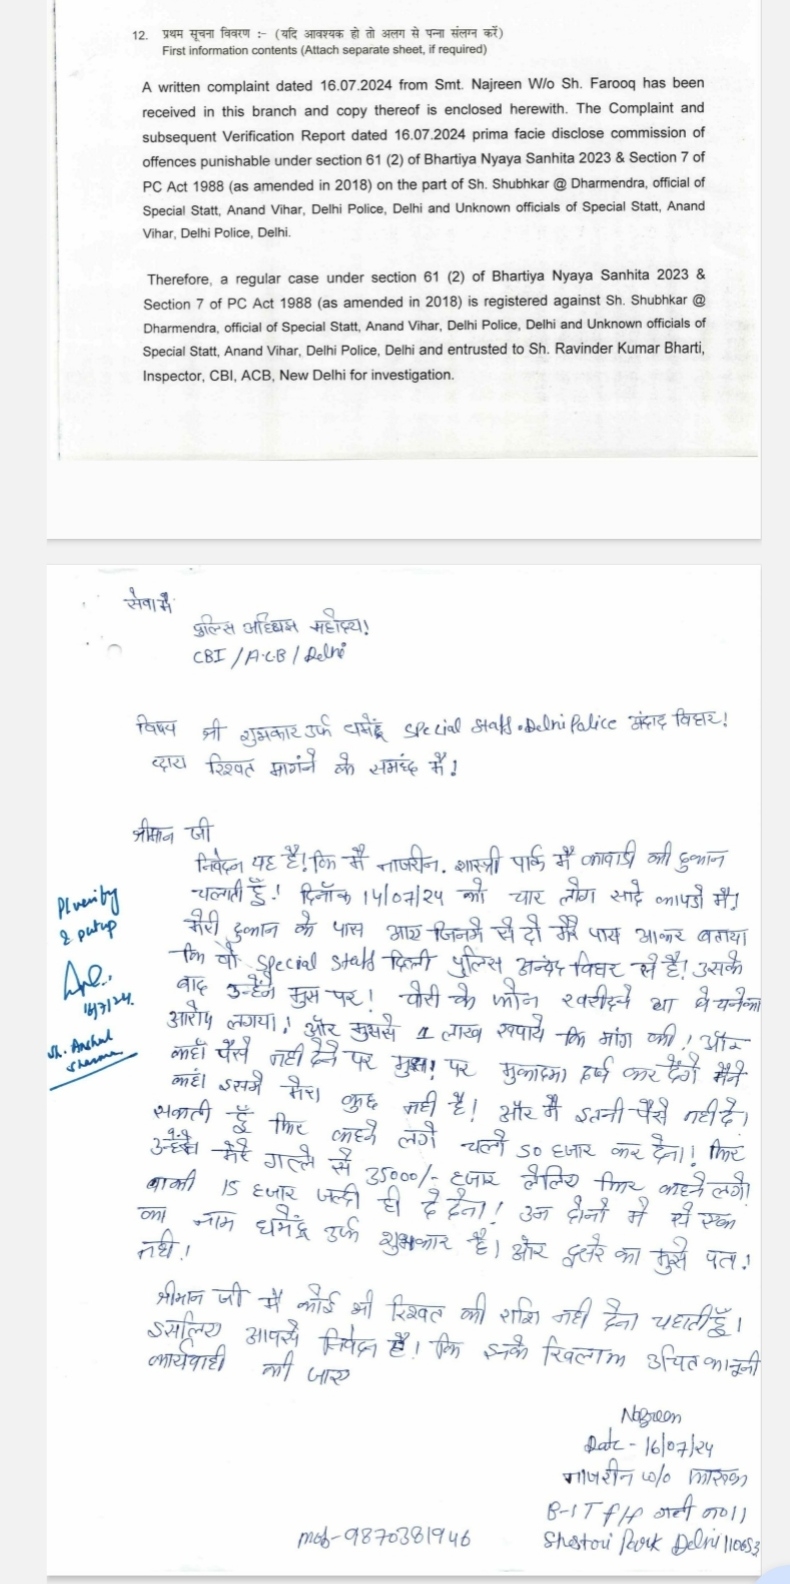 12. प्रथम सूचना विवरण :- (यदि आवश्यक हो तो अलग से पन्ना संलग्न करें)
First information contents (Attach separate sheet, if required)
A written complaint dated 16.07.2024 from Smt. Najreen W/o Sh. Farooq has been
received in this branch and copy thereof is enclosed herewith. The Complaint and
subsequent Verification Report dated 16.07.2024 prima facie disclose commission of
offences punishable under section 61 (2) of Bhartiya Nyaya Sanhita 2023 & Section 7 of
PC Act 1988 (as amended in 2018) on the part of Sh. Shubhkar @ Dharmendra, official of
Special Statt, Anand Vihar, Delhi Police, Delhi and Unknown officials of Special Statt, Anand
Vihar, Delhi Police, Delhi.
Therefore, a regular case under section 61 (2) of Bhartiya Nyaya Sanhita 2023 &
Section 7 of PC Act 1988 (as amended in 2018) is registered against Sh. Shubhkar @
Dharmendra, official of Special Statt, Anand Vihar, Delhi Police, Delhi and Unknown officials of
Special Statt, Anand Vihar, Delhi Police, Delhi and entrusted to Sh. Ravinder Kumar Bharti,
Inspector, CBI, ACB, New Delhi for investigation.
सेवा में
पुलिस अधिक्षक महोदय!
CBI / A.C.B / Delhi
विषय श्री शुभकार उर्फ धर्मेंद्र Special Staff. Delhi Police आंदाद विहार!
द्वारा रिश्वत मागंने के समंध में!
श्रीमान जी
निवेदन यह है! कि मैं नाजरीन. शास्त्री पार्क में कावाडी की दुकान
चलाती हूँ! दिनाँक 14/07/24 को चार लोग सादे कापडो में!
मेरी दुकान के पास आए जिनमें से दो मेरे पास आकर बताया
कि वो Special Staff दिल्ली पुलिस अन्नद विहार से है! उसके
बाद उन्होंने मुझ पर! चोरी के फोन खरीदने या बेचनेका
आरोप लगया! और मुझसे 1 लाख रूपाये कि मांग की! और
कहाँ पैसे नही देने पर मुझ! पर मुकादमा दर्ज कर देंगे मैंने
कहां इसमें मेरा कुछ नही है! और मैं इतनी पैसे नही दे।
सकती हूँ फिर कहने लगे चलो 50 हजार कर देना! फिर
उन्होंने मेरे गल्ले से 35000/- हजार लेलिए फिर कहने लगे।
बाकी 15 हजार जल्दी ही दे देना! उन दोनो में से एक
का नाम धर्मेंद्र उर्फ शुभकार है। और दूसरे का मुझे पता!
नही!
श्रीमान जी मैं कोई भी रिश्वत की राशि नही देना चहाती हूँ।
इसलिए आपसे निवेदन है! कि इनके खिलाफ उचित कानूनी
कार्यवाही की जाए
Pl verify
& putup
16/7/24.
Sh. Anshul
Sharma
Najreen
Date - 16/07/24
नाजरीन w/o फारूक
B-17 f/f गली न० 11
Shastari Park Delhi 110053
mob-9870381946